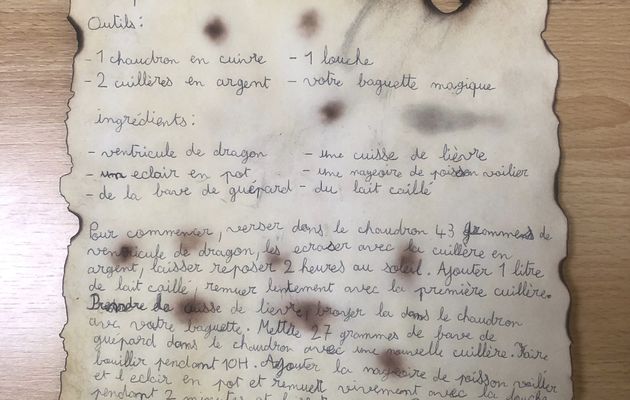 Outils:
- 1 chaudron en cuivre - 1 louche
- 2 cuillères en argent - votre baguette magique
ingrédients:
- ventricule de dragon - une cuisse de lièvre
- un eclair en pot - une nageoire de poisson voilier
- de la bave de guépard - du lait caillé
Pour commencer, verser dans le chaudron 43 grammes de
ventricule de dragon, les ecraser avec la cuillère en
argent, laisser reposer 2 heures au soleil. Ajouter 1 litre
de lait caillé, remuer lentement avec la première cuillère.
Prendre la cuisse de lievre, broyer la dans le chaudron
avec votre baguette. Mettre 27 grammes de bave de
guépard dans le chaudron avec une nouvelle cuillère. Faire
bouillir pendant 10H. Ajouter la nageoire de poisson voilier
et l'eclair en pot et remuer vivement avec la louche
pendant 2 minutes et